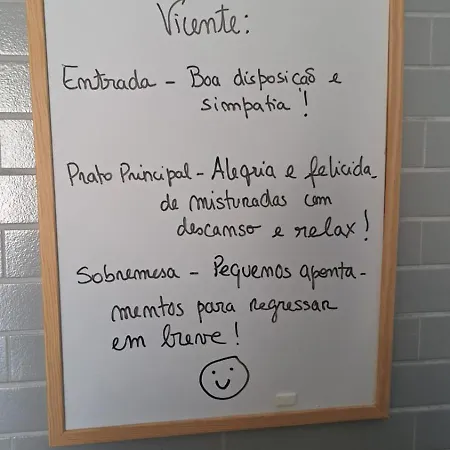 Vicente:
Entrada - Boa disposição e
simpatia!
Prato Principal - Alegria e felicida_
de misturadas com
descanso e relax!
Sobremesa - Pequenos aponta-
mentos para regressar
em breve!